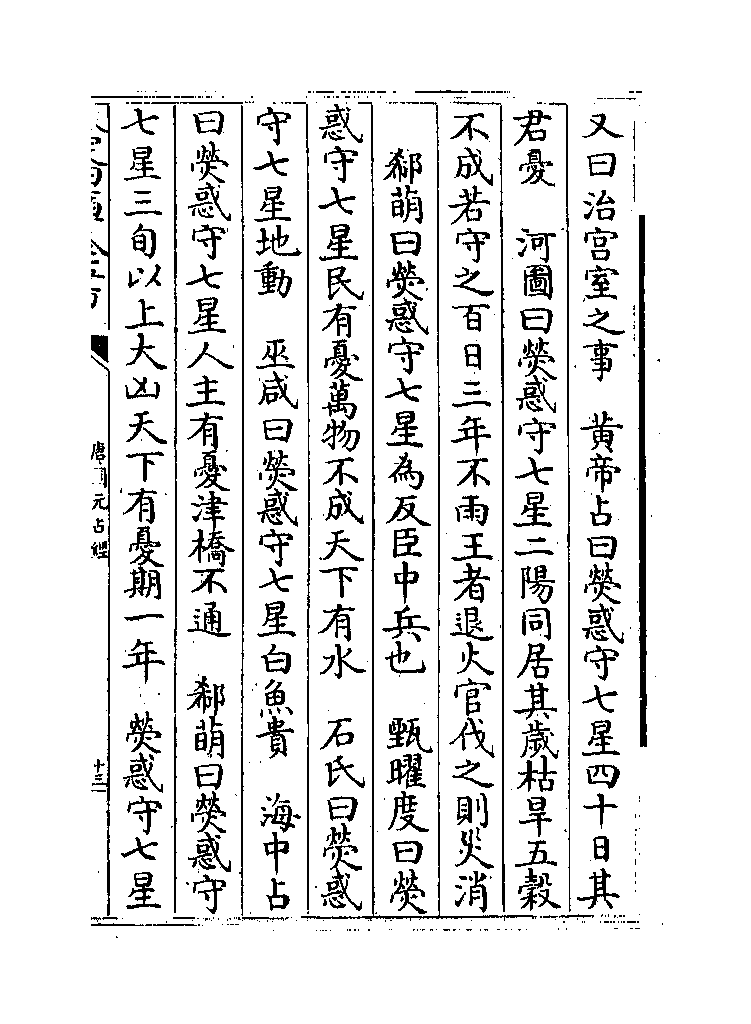 又曰治宫室之事　黄帝占曰熒惑守七星四十日其
君憂　河圖曰熒惑守七星二陽同居其歲枯旱五穀
不成若守之百日三年不雨王者退火官伐之則災消
郗萌曰熒惑守七星為反臣中兵也　甄曜度曰熒
惑守七星民有憂萬物不成天下有水　石氏曰熒惑
守七星地動　巫咸曰熒惑守七星白魚貴　海中占
曰熒惑守七星人主有憂津橋不通　郗萌曰熒惑守
七星三旬以上大凶天下有憂期一年　熒惑守七星
唐開元占經
十三